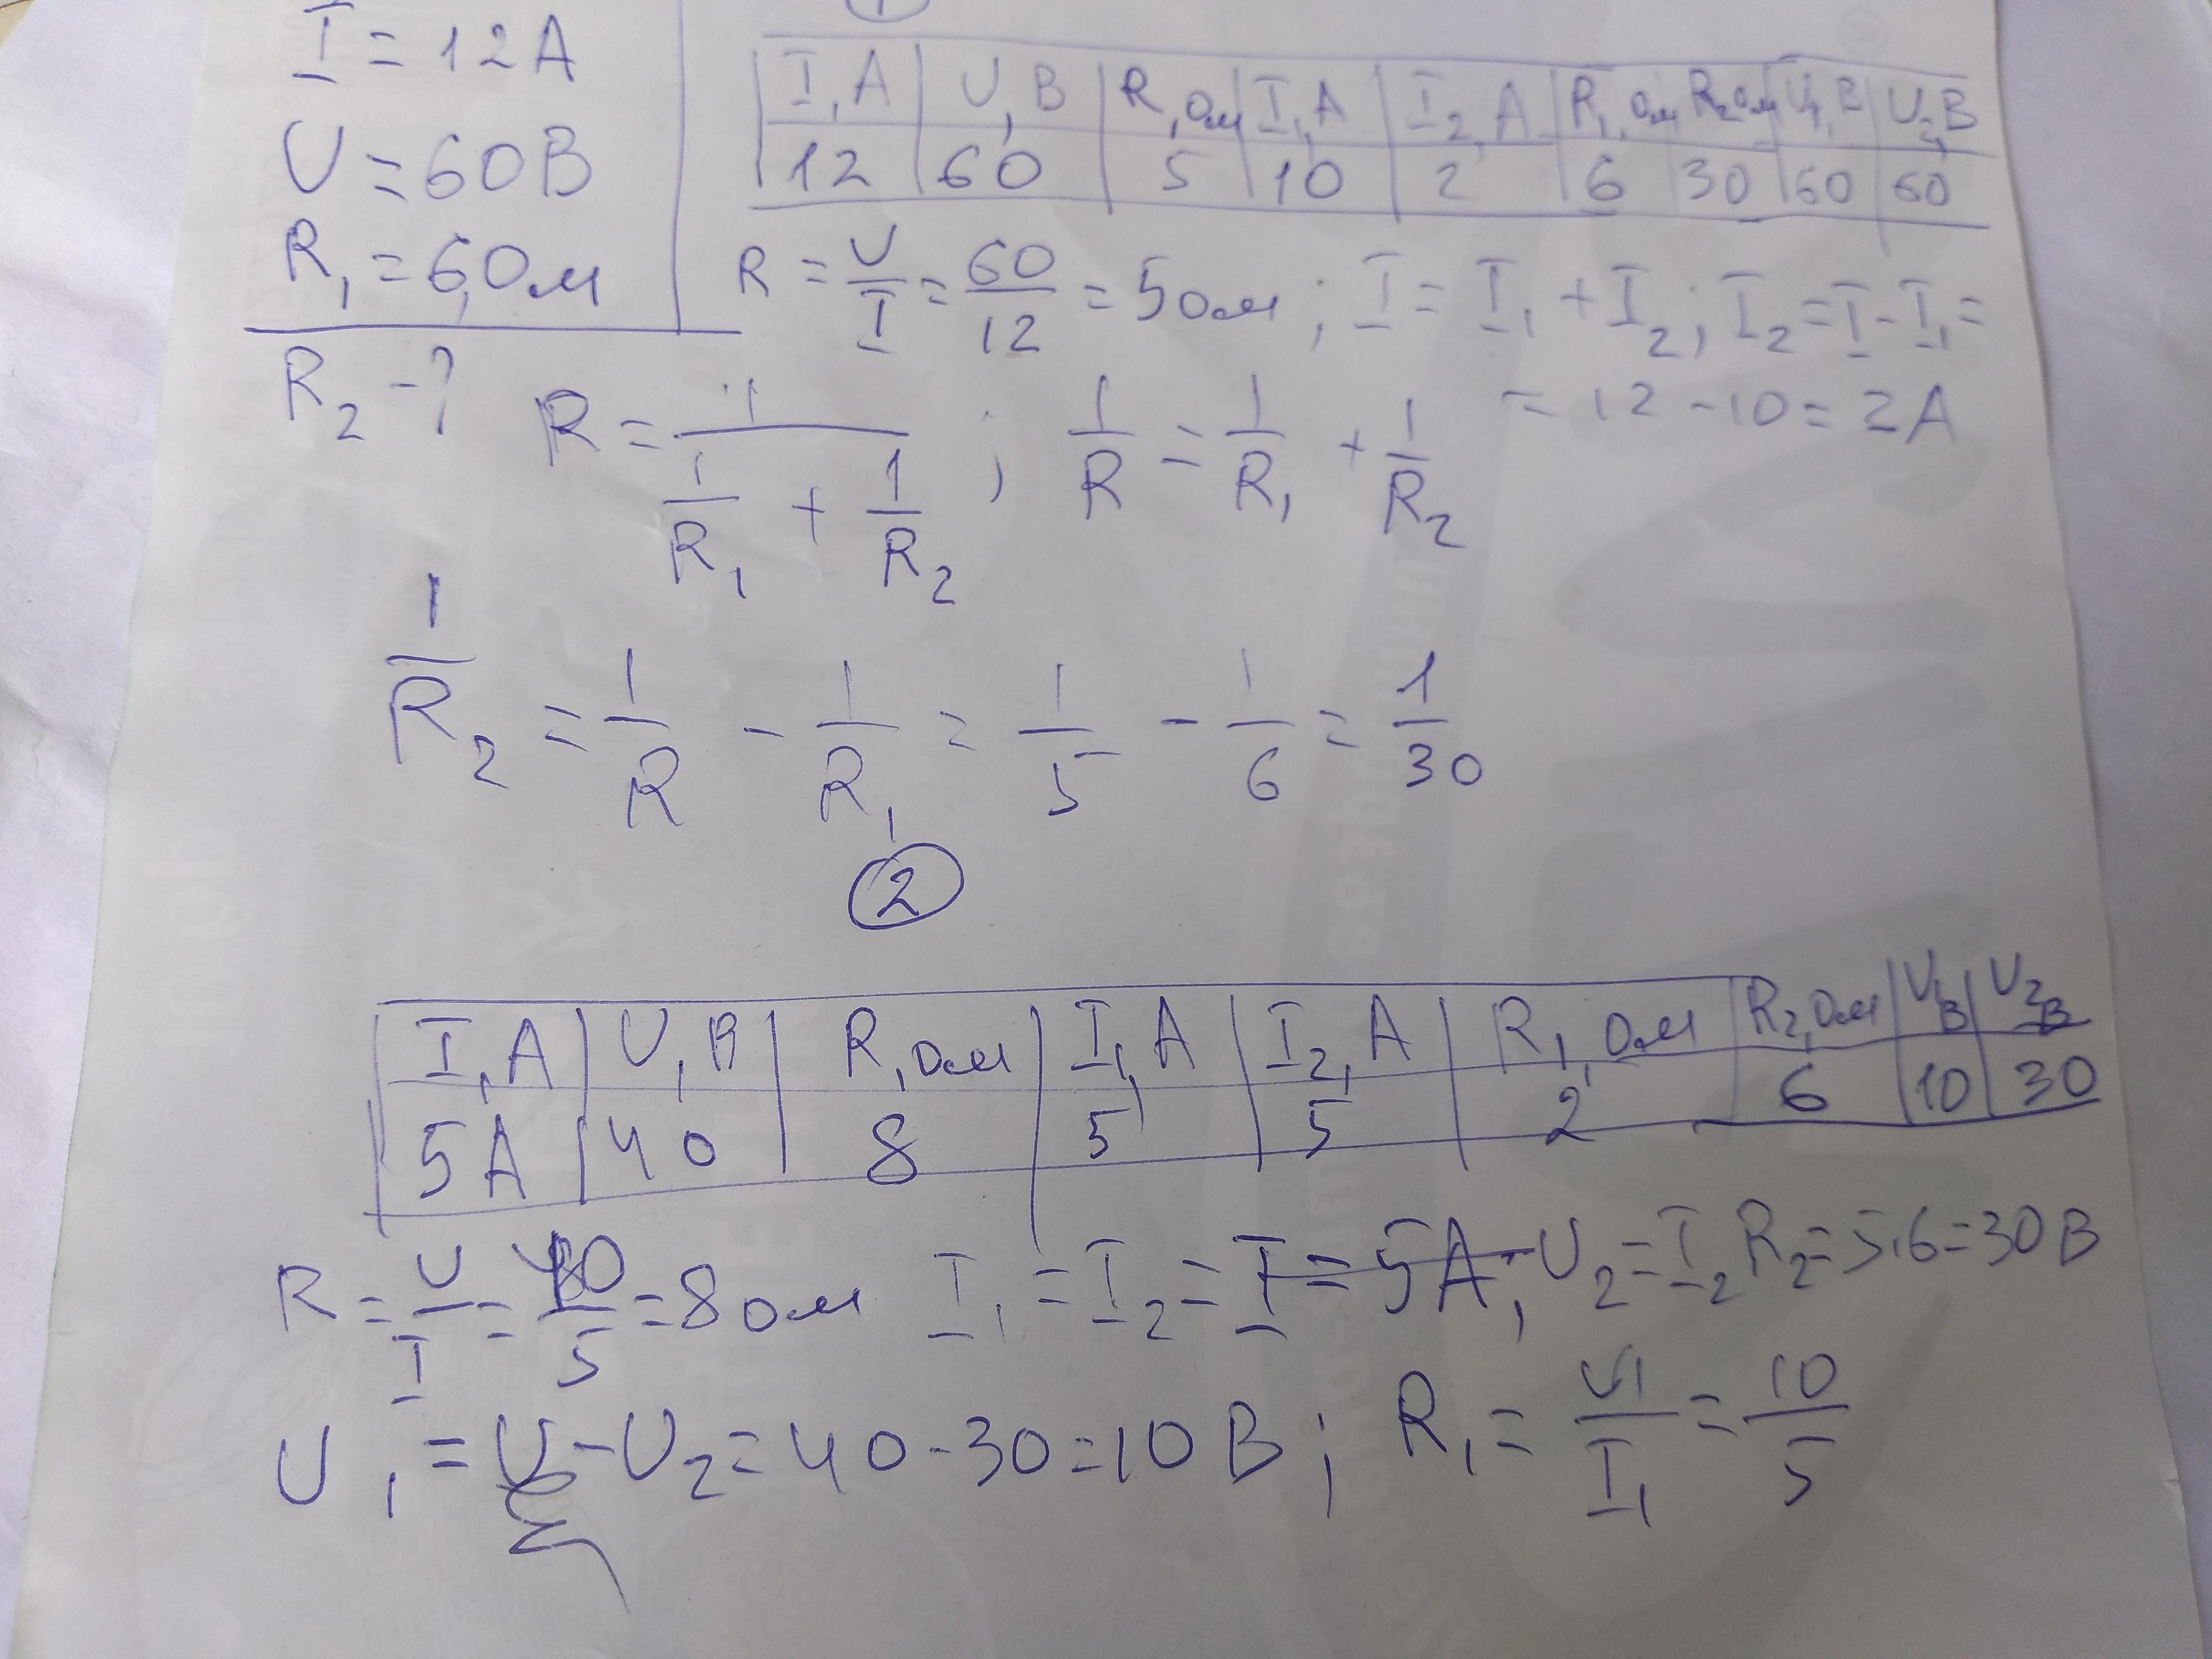 1
I = 12 А
U = 60 В
R₁ = 6 Ом
R₂ - ?
I, А | U, В | R, Ом | I₁, А | I₂, А | R₁, Ом | R₂ Ом | U₁, В | U₂, В
12 | 60 | 5 | 10 | 2 | 6 | 30 | 60 | 60
R = U/I = 60/12 = 5 Ом ; I = I₁ + I₂ ; I₂ = I - I₁ =
= 12 - 10 = 2 А
R = 1/(1/R₁ + 1/R₂) ; 1/R = 1/R₁ + 1/R₂
1/R₂ = 1/R - 1/R₁ = 1/5 - 1/6 = 1/30
2
I, А | U, В | R, Ом | I₁, А | I₂, А | R₁, Ом | R₂, Ом | U₁ В | U₂ В
5 А | 40 | 8 | 5 | 5 | 2 | 6 | 10 | 30
R = U/I = 40/5 = 8 Ом I₁ = I₂ = I = 5 А, U₂ = I₂ R₂ = 5·6 = 30 В
U₁ = U - U₂ = 40 - 30 = 10 В ; R₁ = U₁/I₁ = 10/5